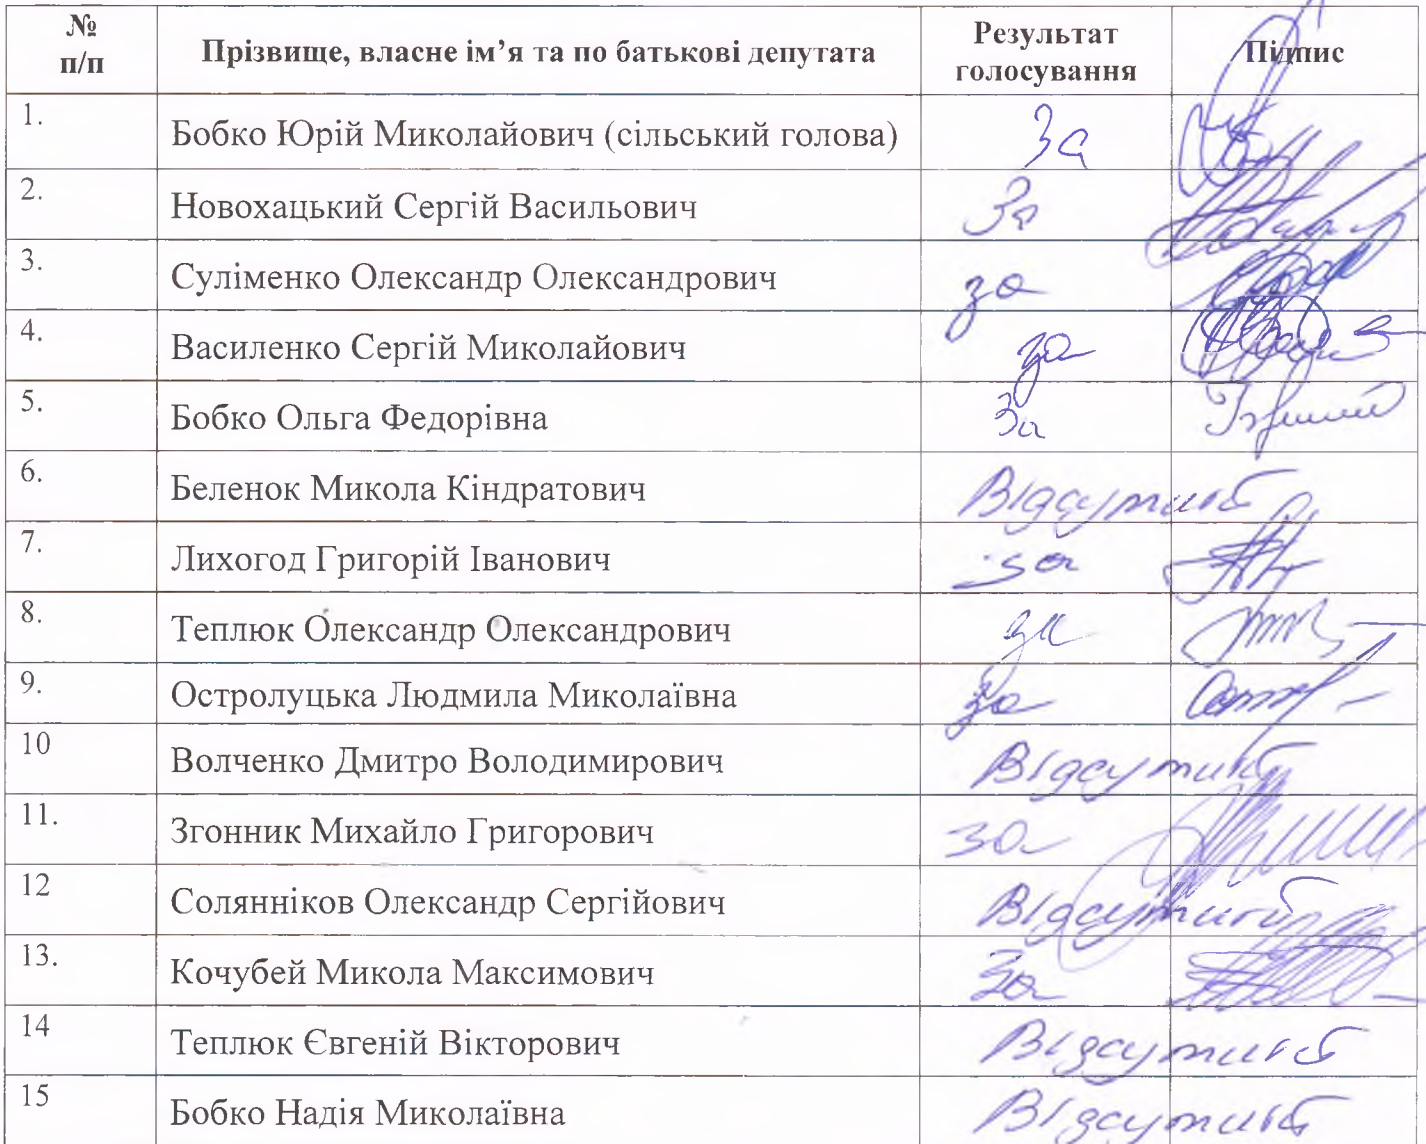 № п/п Прізвище, власне ім’я та по батькові депутата Результат голосування Підпис
1. Бобко Юрій Миколайович (сільський голова) За
2. Новохацький Сергій Васильович За
3. Суліменко Олександр Олександрович за
4. Василенко Сергій Миколайович за
5. Бобко Ольга Федорівна За
6. Беленок Микола Кіндратович Відсутній
7. Лихогод Григорій Іванович за
8. Теплюк Олександр Олександрович за
9. Остролуцька Людмила Миколаївна за
10 Волченко Дмитро Володимирович Відсутній
11. Згонник Михайло Григорович за
12 Солянніков Олександр Сергійович Відсутній
13. Кочубей Микола Максимович За
14 Теплюк Євгеній Вікторович Відсутній
15 Бобко Надія Миколаївна